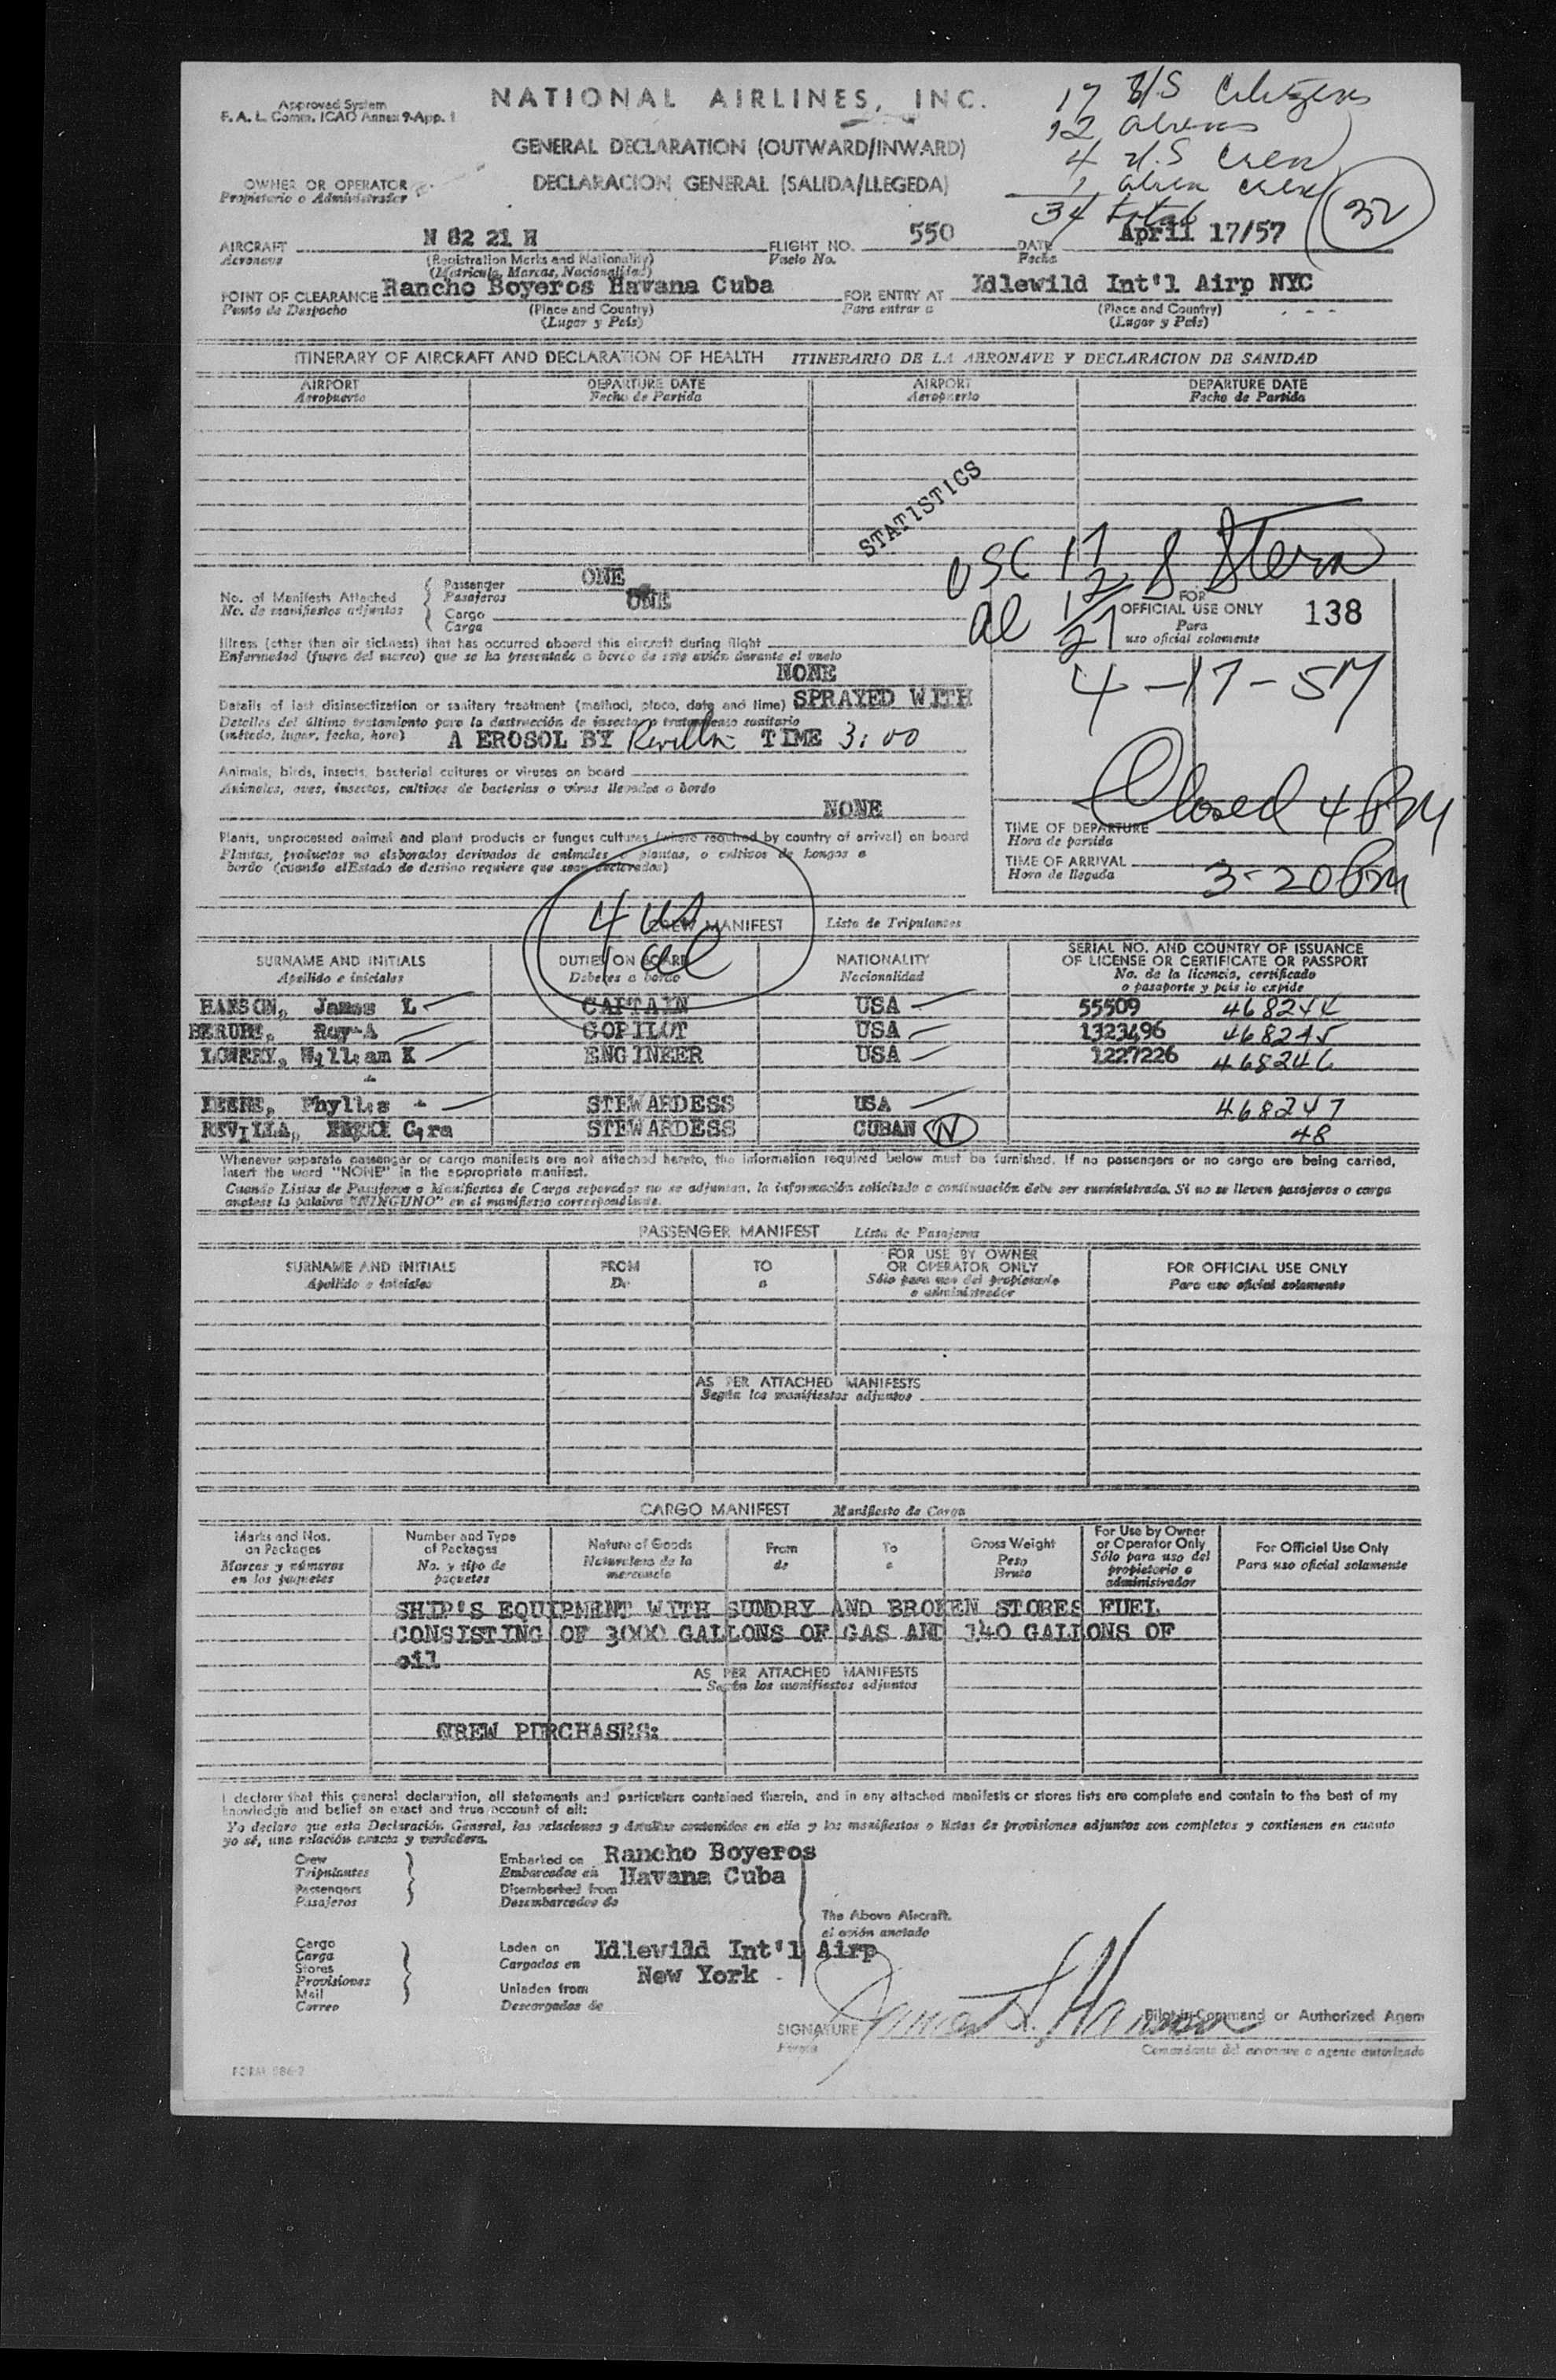 Approved System
F. A. L. Comm. ICAO Annex 9-App. 1
NATIONAL AIRLINES, INC.
17 U/S Citizens
12 aliens
4 U.S crew
1 alien crew
34 total
32
GENERAL DECLARATION (OUTWARD/INWARD)
DECLARACION GENERAL (SALIDA/LLEGEDA)
OWNER OR OPERATOR
Propietario o Administrador
AIRCRAFT N 82 21 H FLIGHT NO. 550 DATE April 17/57
Aeronave (Registration Marks and Nationality) Vuelo No. Fecha
(Matricula, Marcas, Nacionalidad)
POINT OF CLEARANCE Rancho Boyeros Havana Cuba FOR ENTRY AT Idlewild Int'l Airp NYC
Punto de Despacho (Place and Country) Para entrar a (Place and Country)
(Lugar y País) (Lugar y País)
ITINERARY OF AIRCRAFT AND DECLARATION OF HEALTH ITINERARIO DE LA AERONAVE Y DECLARACION DE SANIDAD
AIRPORT DEPARTURE DATE AIRPORT DEPARTURE DATE
Aeropuerto Fecha de Partida Aeropuerto Fecha de Partida
STATISTICS
USC 17 S Stern
al 12
No. of Manifests Attached
No. de manifiestos adjuntos
Passenger ONE
Pasajeros
Cargo ONE
Carga
FOR
OFFICIAL USE ONLY 138
Para
uso oficial solamente
4-17-57
Illness (other than air sickness) that has occurred aboard this aircraft during flight
Enfermedad (fuera del mareo) que se ha presentado a bordo de este avión durante el vuelo
NONE
Details of last disinsectization or sanitary treatment (method, place, date and time) SPRAYED WITH
Detalles del último tratamiento para la destrucción de insectos o tratamiento sanitario
(método, lugar, fecha, hora) A EROSOL BY Revilla TIME 3:00
Animals, birds, insects, bacterial cultures or viruses on board
Animales, aves, insectos, cultivos de bacterias o virus llevados a bordo
NONE
Plants, unprocessed animal and plant products or fungus cultures (where required by country of arrival) on board
Plantas, productos no elaborados derivados de animales o plantas, o cultivos de hongos a
bordo (cuando el Estado de destino requiere que sean declarados)
Closed 4 PM
TIME OF DEPARTURE
Hora de partida
TIME OF ARRIVAL 3-20 PM
Hora de llegada
4 us
1 al
CREW MANIFEST Lista de Tripulantes
SURNAME AND INITIALS DUTIES ON BOARD NATIONALITY SERIAL NO. AND COUNTRY OF ISSUANCE
OF LICENSE OR CERTIFICATE OR PASSPORT
Apellido e iniciales Deberes a bordo Nacionalidad No. de la licencia, certificado
o pasaporte y país lo expide
HANSON, James L CAPTAIN USA 55509 468244
BERUBE, Roy A COPILOT USA 1323496 468245
LOWERY, William K ENGINEER USA 1227226 468246
KEENE, Phyllis STEWARDESS USA 468247
REVILLA, Cira STEWARDESS CUBAN N 48
Whenever separate passenger or cargo manifests are not attached hereto, the information required below must be furnished. If no passengers or no cargo are being carried,
insert the word "NONE" in the appropriate manifest.
Cuando Listas de Pasajeros o Manifiestos de Carga separados no se adjuntan, la información solicitada a continuación debe ser suministrada. Si no se lleven pasajeros o carga
anotese la palabra "NINGUNO" en el manifiesto correspondiente.
PASSENGER MANIFEST Lista de Pasajeros
SURNAME AND INITIALS FROM TO FOR USE BY OWNER
OR OPERATOR ONLY FOR OFFICIAL USE ONLY
Apellido e iniciales De a Sólo para uso del propietario
o administrador Para uso oficial solamente
AS PER ATTACHED MANIFESTS
Según los manifiestos adjuntos
CARGO MANIFEST Manifiesto de Carga
Marks and Nos.
on Packages
Marcas y números
en los paquetes
Number and Type
of Packages
No. y tipo de
paquetes
Nature of Goods
Naturaleza de la
mercancía
From
de
To
a
Gross Weight
Peso
Bruto
For Use by Owner
or Operator Only
Sólo para uso del
propietario o
administrador
For Official Use Only
Para uso oficial solamente
SHIP'S EQUIPMENT WITH SUNDRY AND BROKEN STORES FUEL
CONSISTING OF 3000 GALLONS OF GAS AND 140 GALLONS OF
oil
AS PER ATTACHED MANIFESTS
Según los manifiestos adjuntos
CREW PURCHASES:
I declare that this general declaration, all statements and particulars contained therein, and in any attached manifests or stores lists are complete and contain to the best of my
knowledge and belief an exact and true account of all:
Yo declaro que esta Declaración General, las relaciones y detalles contenidos en ella y los manifiestos o listas de provisiones adjuntos son completos y contienen en cuanto
yo sé, una relación exacta y verdadera.
Crew
Tripulantes
Passengers
Pasajeros
Embarked on Rancho Boyeros
Embarcados en Havana Cuba
Disembarked from
Desembarcados de
The Above Aircraft.
el avión anotado
Cargo
Carga
Stores
Provisiones
Mail
Correo
Laden on Idlewild Int'l Airp
Cargados en New York
Unladen from
Descargados de
SIGNATURE James L. Hanson Pilot in Command or Authorized Agent
Firma Comandante del aeronave o agente autorizado
FORM 586-2